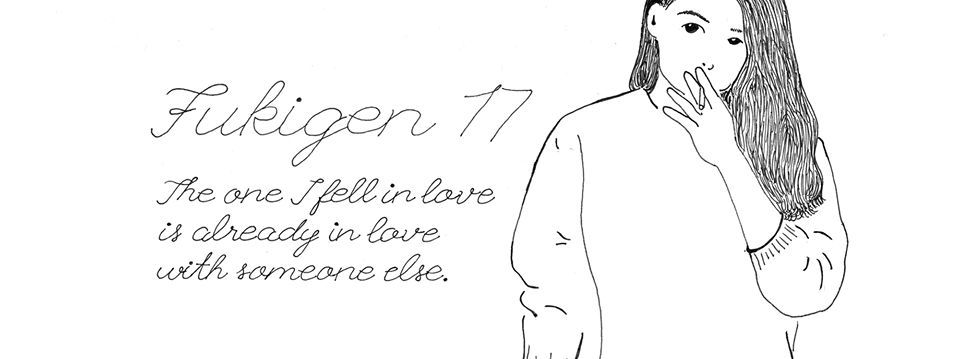 Fukigen 17
The one I fell in love
is already in love
with someone else.